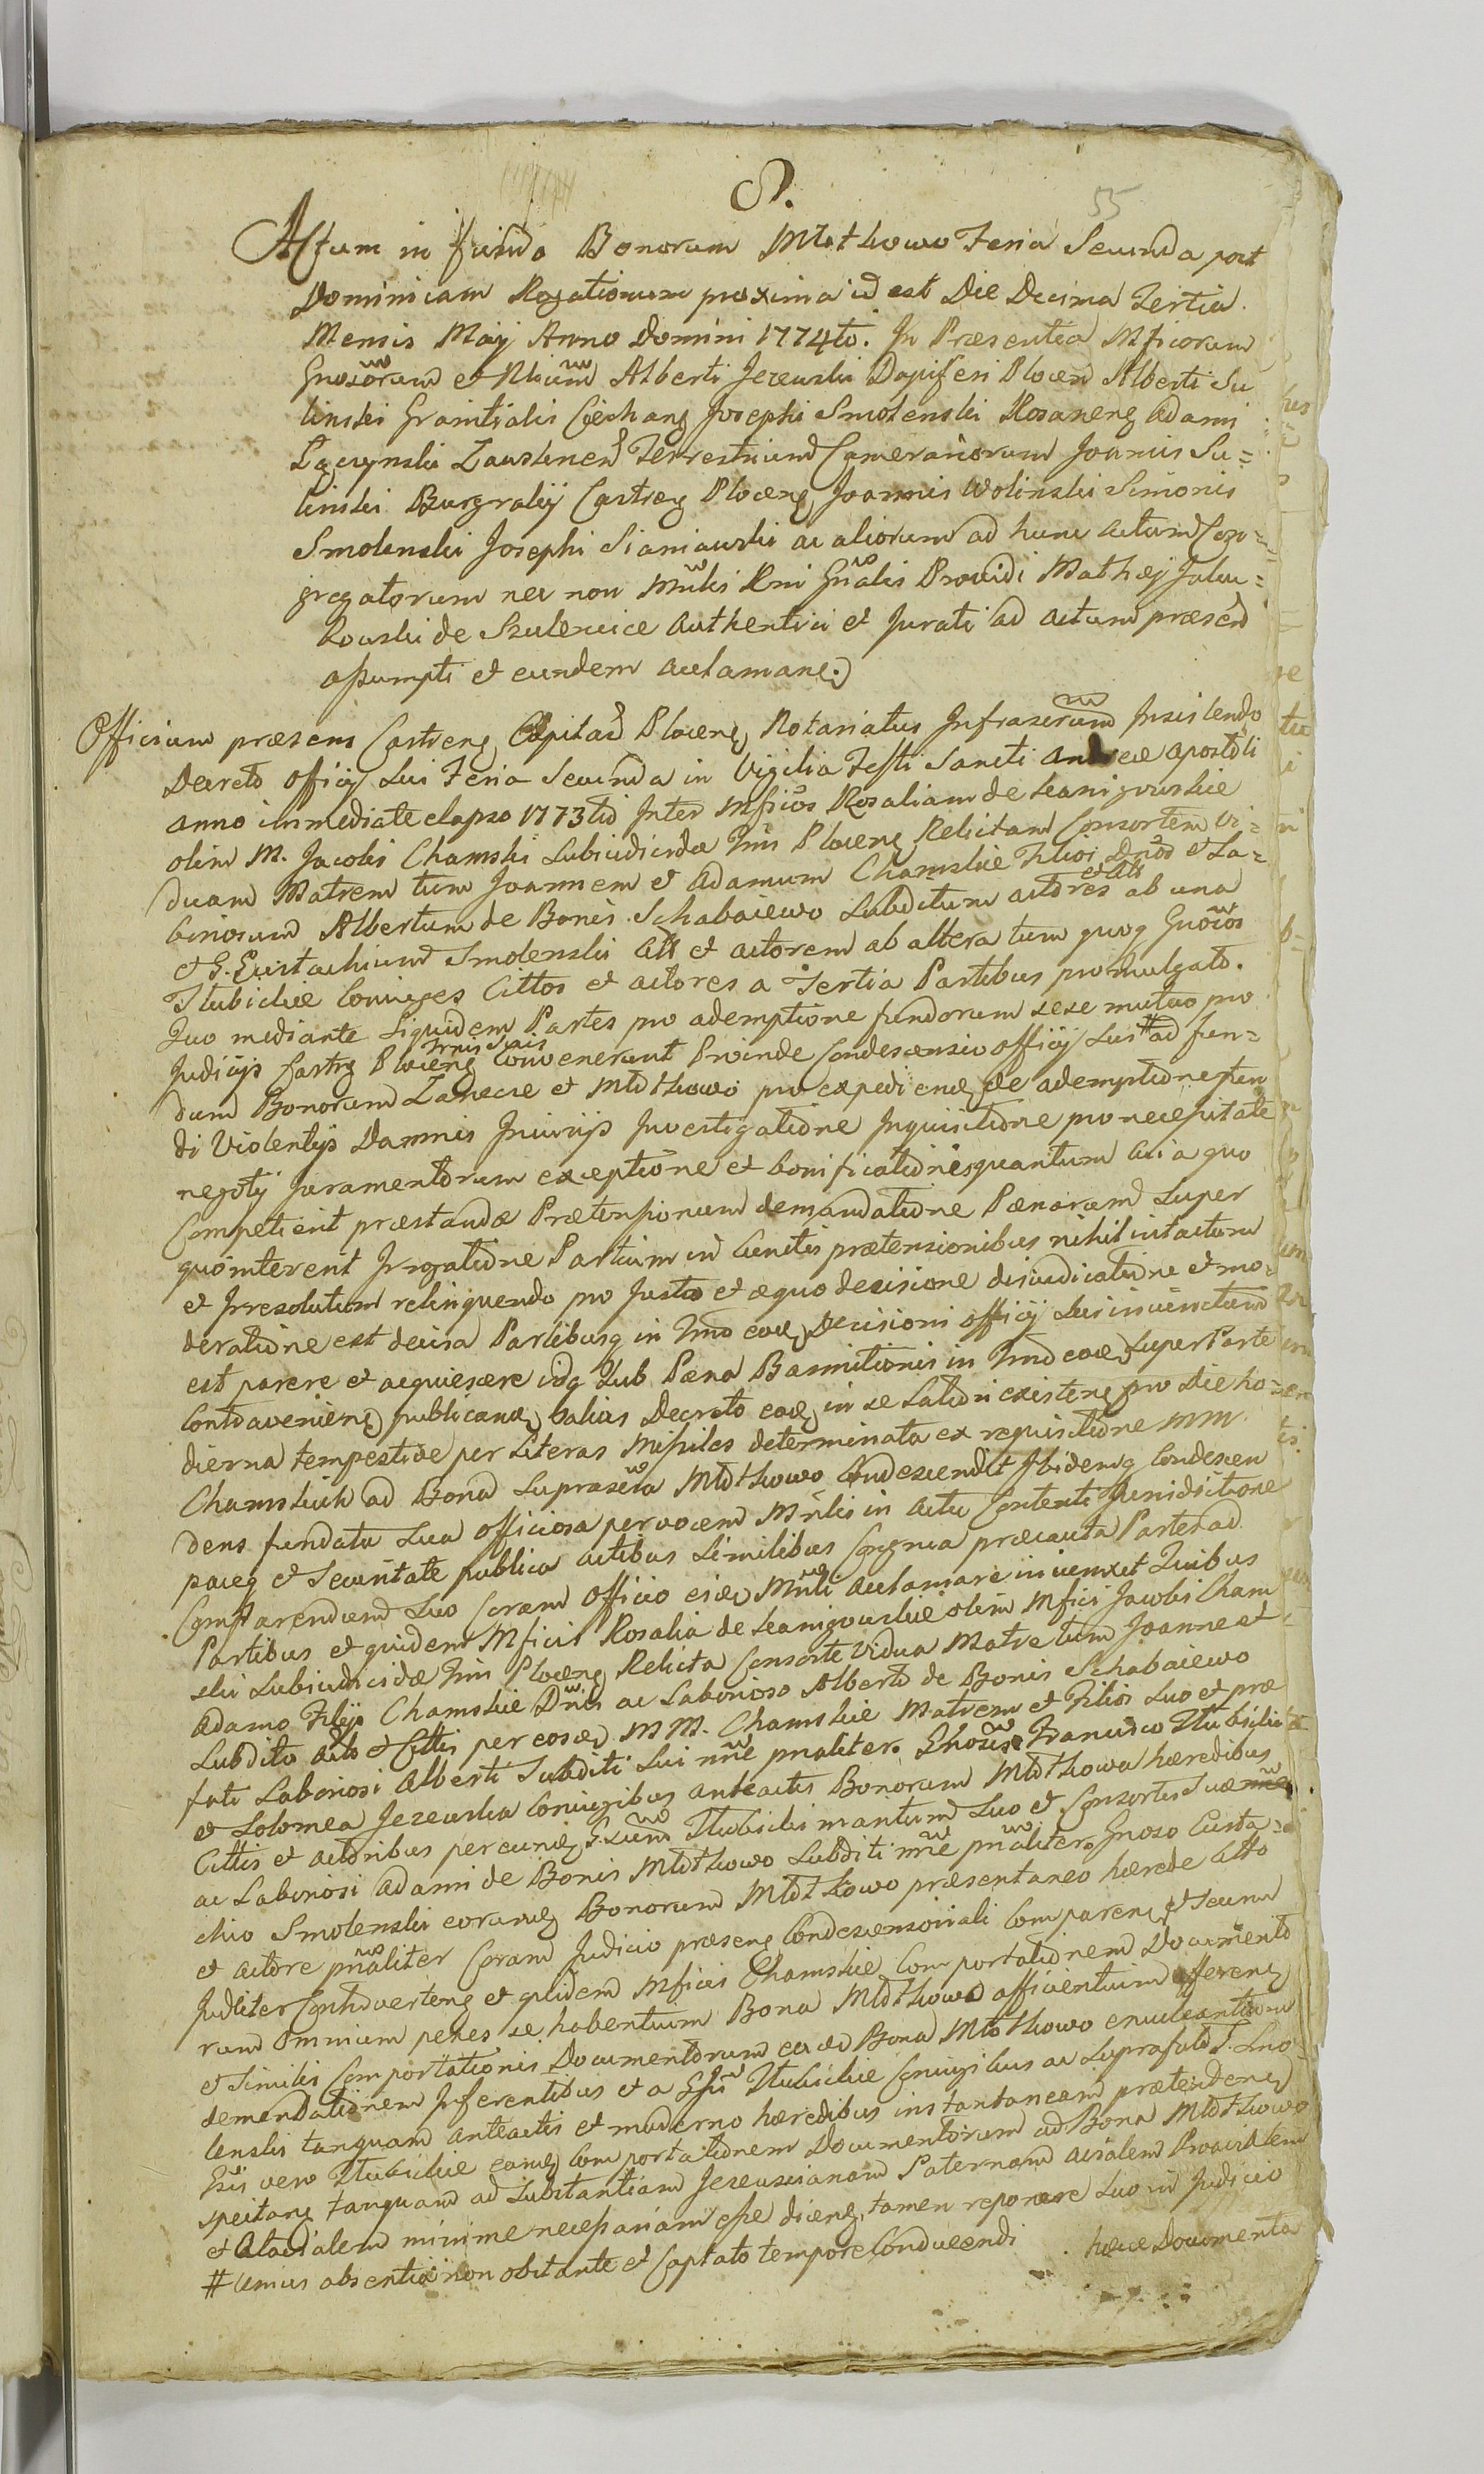 55
Actum in fundo Bonorum Mlothowo Feria Secunda post
Dominicam Rogationum proxima id est Die Decima Tertia
Mensis Maij Anno Domini 1774to. In Præsentia Mficorum
Gnosorum et Nlium Alberti Jezewski Dapiferi Plocen Alberti Su
linski Granitialis Ciechang Josephi Smolenski Rosaneng Adami
Zawskrnen Terrestrium Camerariorum Joannis Su=
linski Burgrabij Castreng Ploceng Joannis Wolinski Simonis
Smolenski Josephi Sianiawski ac aliorum ad hunc actum Con=
gregatorum nec non Mnlis Rni Gnalis Providi Mathæj
de Szulerzice Authentici et Jurati ad actum præsen
assumpti et eundem acclamane.
Officium præsens Castreng Capitan Ploceng Notariatus Infrascrum Insistendo
Decreto Officij Sui Feria Secunda in Vigilia Festi Sancti Andreæ Apostoli
anno immediate elapso 1773tio Inter Mficos Rosaliam de Leanigowskie
olim M. Jacobi Chamski Subiudicidæ Trris Ploceng Relictam Consortem Vi=
duam Matrem tum Joannem et Adamum Chamskie Filios Dnos et La=
boriosum Albertum de Bonis Schabaiewo Subditum actores et Atts ab una
et G. Eustachium Smolenski Att et actorem ab altera tum quoq Gnosos
Itubickie Coniuges Cittos et actores a Tertia Partibus promulgato.
Quo mediante Siquidem Partes pro ademptione fundorum sese mutuo pro
Judicijs Castrg Ploceng Trris Suis Convenerunt Proinde Condescensio officij Sui # ad fun=
dum Bonorum Zanecie et Mlothowo pro expediend de ademptione fun
di Violentijs Damnis Iniurijs Investigatione Inquisitione pro necessitate
negotij Juramentorum exceptione et bonificationes quantum cui a quo
Competierit præstanda Prætensionum demandatione Pænarum Super
quo interent Irrogatione Partium in cunctis prætensionibus nihil intactum
et Irresolutum relinquendo pro Justo et æquo decisione disiudicatione et mo=
deratione est decisa Partibusq in Tmo eod Decisioni officij Sui iniunctum
est parere et acquiescere idq Sub Pæna Bannitionis in Tmo eod Super Parte
Contravenieng publicand Salias Decreto eod in se latiori existeng pro Die ho=
dierna tempestive per Literas Missiles determinata ex requisitione MM
Chamskich ad Bona Suprascta Mlothowo Condescendit Ibidemq Condescen
dens fundata Sua officiosa per vocem Mnlis in actu Contenti Jurisdictione
paceq et Securitate publica actibus Similibus Congrua præcauta Partes ad
Comparendum Suo Coram Officio eid Mnli acclamare iniunxit Quibus
Partibus et quidem Mficis Rosalia de Leanigowskie olim Mfici Jacobi Cham
ski Subiudicidæ Trris Ploceng Relicta Consorte Vidua Matre tum Joanne et
Adamo Filijs Chamskie Dnis ac Laborioso Alberto de Bonis Schabaiewo
Subdito Acto et Cittis per eosd MM. Chamskie Matrem et Filios Suo et præ
fati Laboriosi Alberti Subditi Sui nne pnaliter. Gnosis Francisco Itubicki
et Solomea Jezewska Coniugibus anteactis Bonorum Mlothowa hæredibus
Cittis et actoribus per eund Itubicki maritum Suo et Consortis Suæ nne
ac Laboriosi Adami de Bonis Mlothowo Subditi nne pnaliter Gnoso Eusta=
chio Smolenski eorund Bonorum Mlothowo præsentaneo hærede Atto
et actore pnaliter Coram Judicio præseng Condescensoriali Compareng et Secum
Judliter Controverteng et quidem Mficis Chamskie Comportationem Documento
rum Omnium penes se habentium Bona Mlothowo afficientium affereng
et Similis Comportationis Documentorum ead Bona Mlothowo enucleantium
demandationem Inferentibus et a Itubickie Coniugibus ac Suprafato G. Smo
lenski tanquam anteactis et moderno hæredibus instantaneam prætendeng
Gsis vero Itubickie eand Comportationem Documentorum ad Bona Mlothowo
spectang tanquam ad Substantiam Jezewscianam Paternam avialem Proavialem
et Atavialem minime necessariam esse diceng, tamen reponere Suo in Judicio
# unius absentia non obstante et Captato tempore Conducendi
hæce Documenta